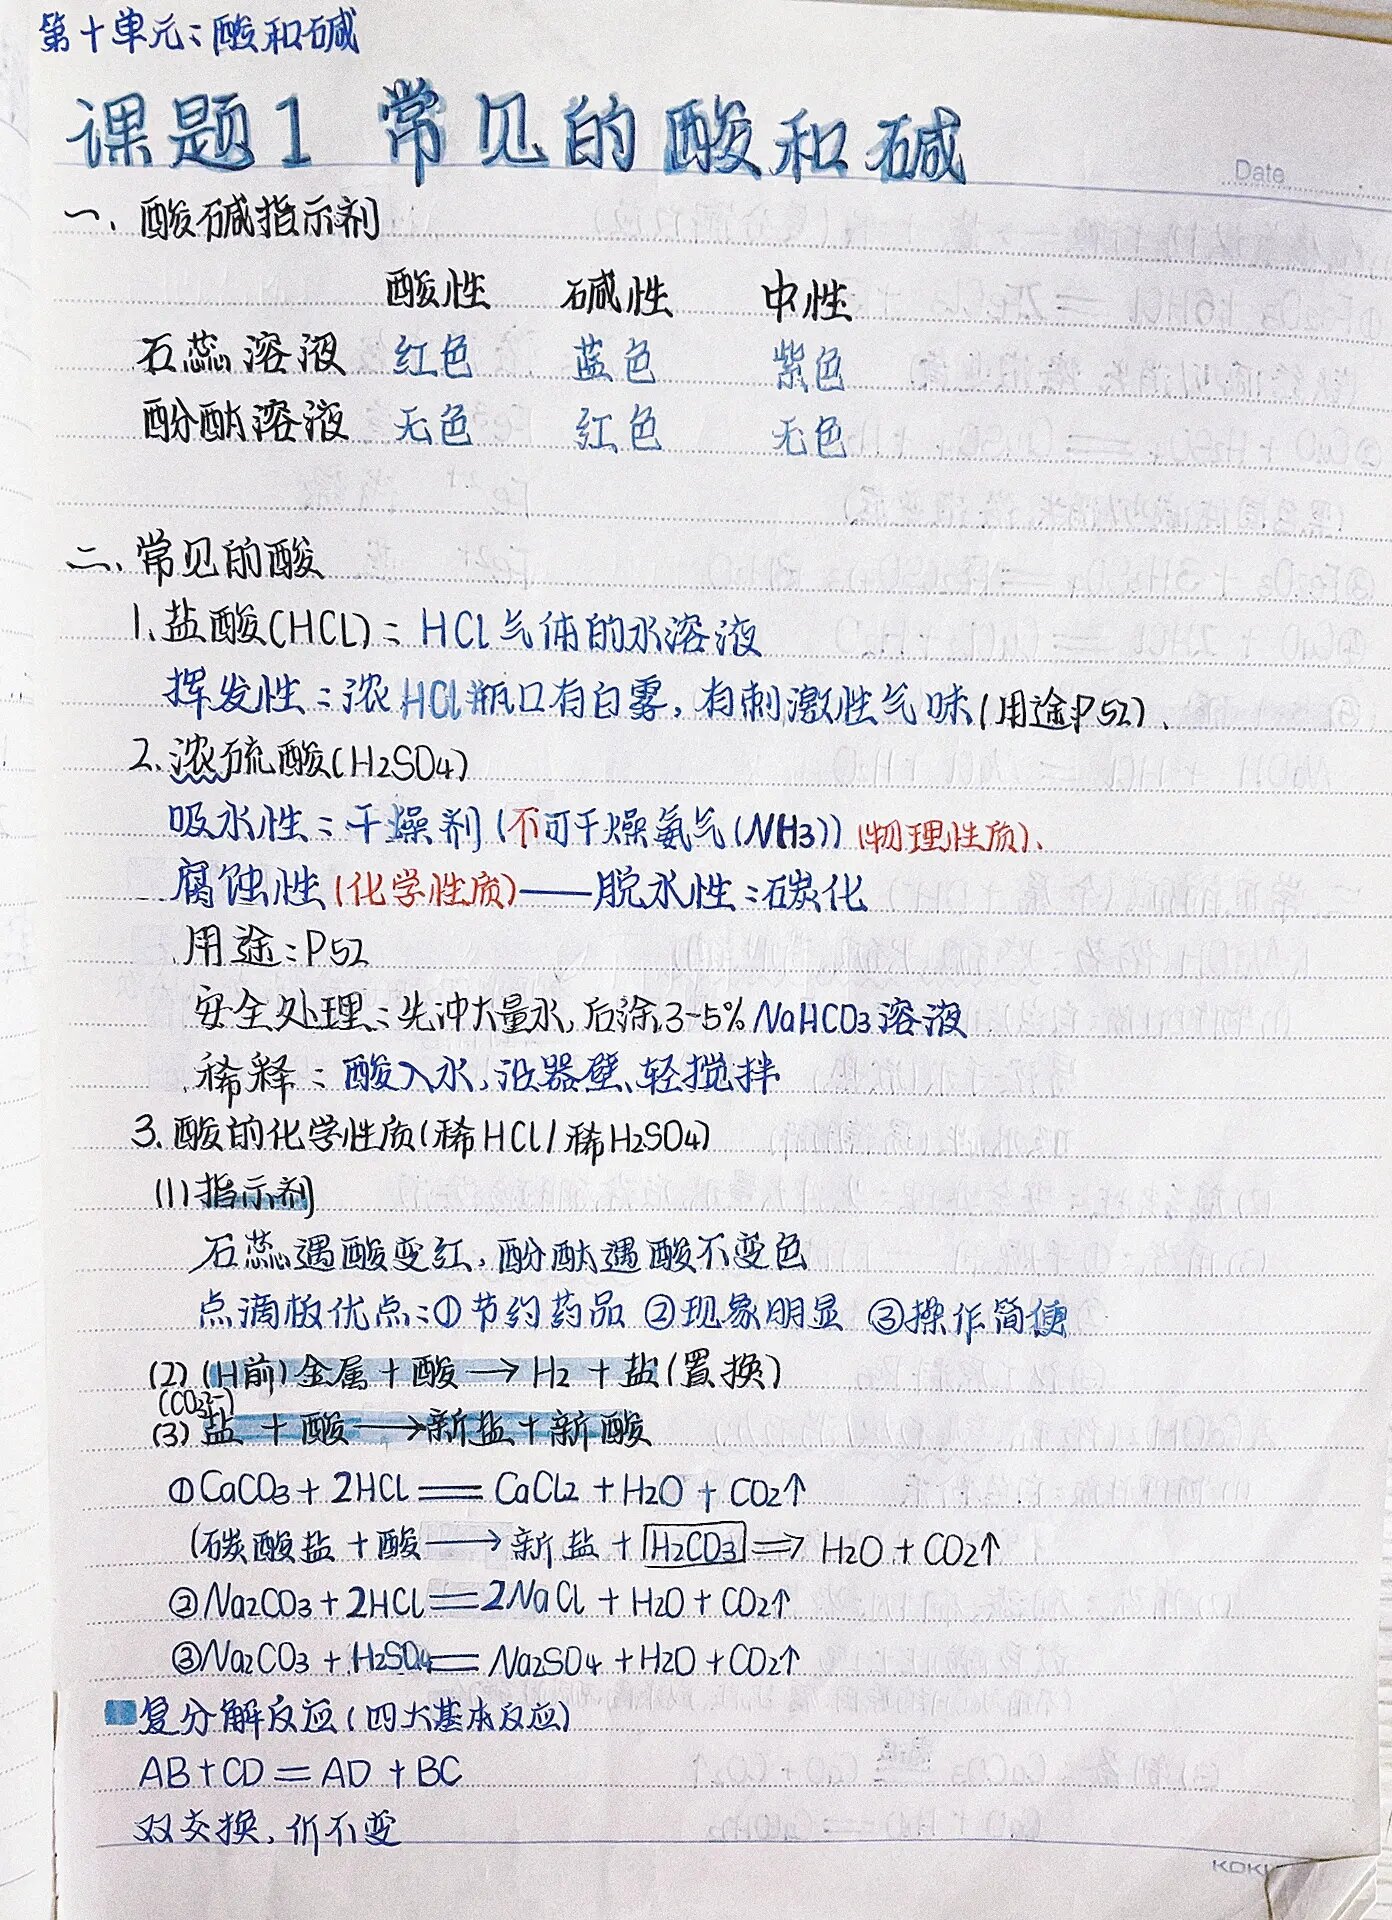 第十单元：酸和碱
课题1 常见的酸和碱
Date
一、酸碱指示剂
酸性 碱性 中性
石蕊溶液 红色 蓝色 紫色
酚酞溶液 无色 红色 无色
二、常见的酸
1.盐酸(HCL)：HCl气体的水溶液
挥发性：浓HCl瓶口有白雾，有刺激性气味(用途P52).
2.浓硫酸(H2SO4)
吸水性：干燥剂(不可干燥氨气(NH3))(物理性质).
腐蚀性(化学性质)——脱水性：碳化
用途：P52
安全处理：先冲大量水,后涂3-5%NaHCO3溶液
稀释：酸入水,沿器壁、轻搅拌
3.酸的化学性质(稀HCl/稀H2SO4)
(1)指示剂
石蕊遇酸变红,酚酞遇酸不变色
点滴板优点：①节约药品 ②现象明显 ③操作简便
(2)(H前)金属+酸→H2+盐(置换)
(CO3²⁻)
(3)盐+酸→新盐+新酸
①CaCO3+2HCl══CaCl2+H2O+CO2↑
(碳酸盐+酸→新盐+H2CO3⇒H2O+CO2↑
②Na2CO3+2HCl══2NaCl+H2O+CO2↑
③Na2CO3+H2SO4══Na2SO4+H2O+CO2↑
复分解反应(四大基本反应)
AB+CD=AD+BC
双交换,价不变